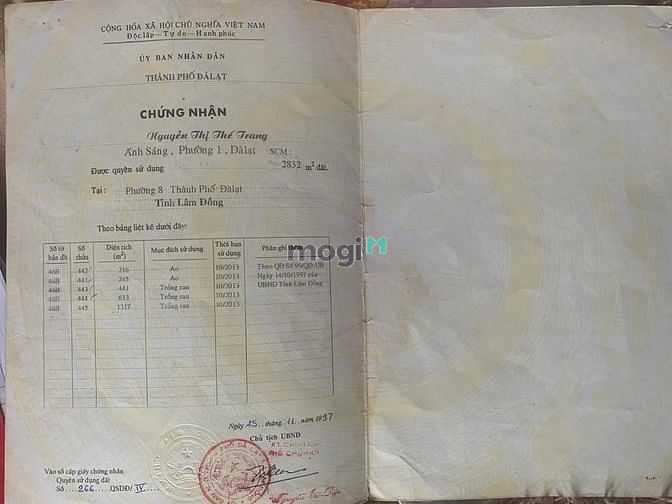 CỘNG HÒA XÃ HỘI CHỦ NGHĨA VIỆT NAM
Độc lập – Tự do – Hạnh phúc
ỦY BAN NHÂN DÂN
THÀNH PHỐ ĐÀLẠT
CHỨNG NHẬN
Nguyễn Thị Thế Trang
Ánh Sáng, Phường 1, Đàlạt SCM :
Được quyền sử dụng 2832 m² đất.
Tại : Phường 8 Thành Phố Đàlạt
Tỉnh Lâm Đồng
Theo bảng liệt kê dưới đây:
Số tờ bản đồ Số thửa Diện tích (m²) Mục đích sử dụng Thời hạn sử dụng Phần ghi thêm
46B 442 216 Ao 10/2013 Theo QĐ Số 99/QĐ-UB
46B 441 245 Ao 10/2013 Ngày 14/10/1997 của
46B 443 441 Trồng rau 10/2013 UBND Tỉnh Lâm Đồng
46B 444 613 Trồng rau 10/2013
46B 445 1317 Trồng rau 10/2013
mogi
Ngày 25 tháng 11 năm 1997
Chủ tịch UBND
KT. CHỦ TỊCH
PHÓ CHỦ TỊCH
Vào sổ cấp giấy chứng nhận
Quyền sử dụng đất
Số 266 QSDĐ/ IV
Nguyễn